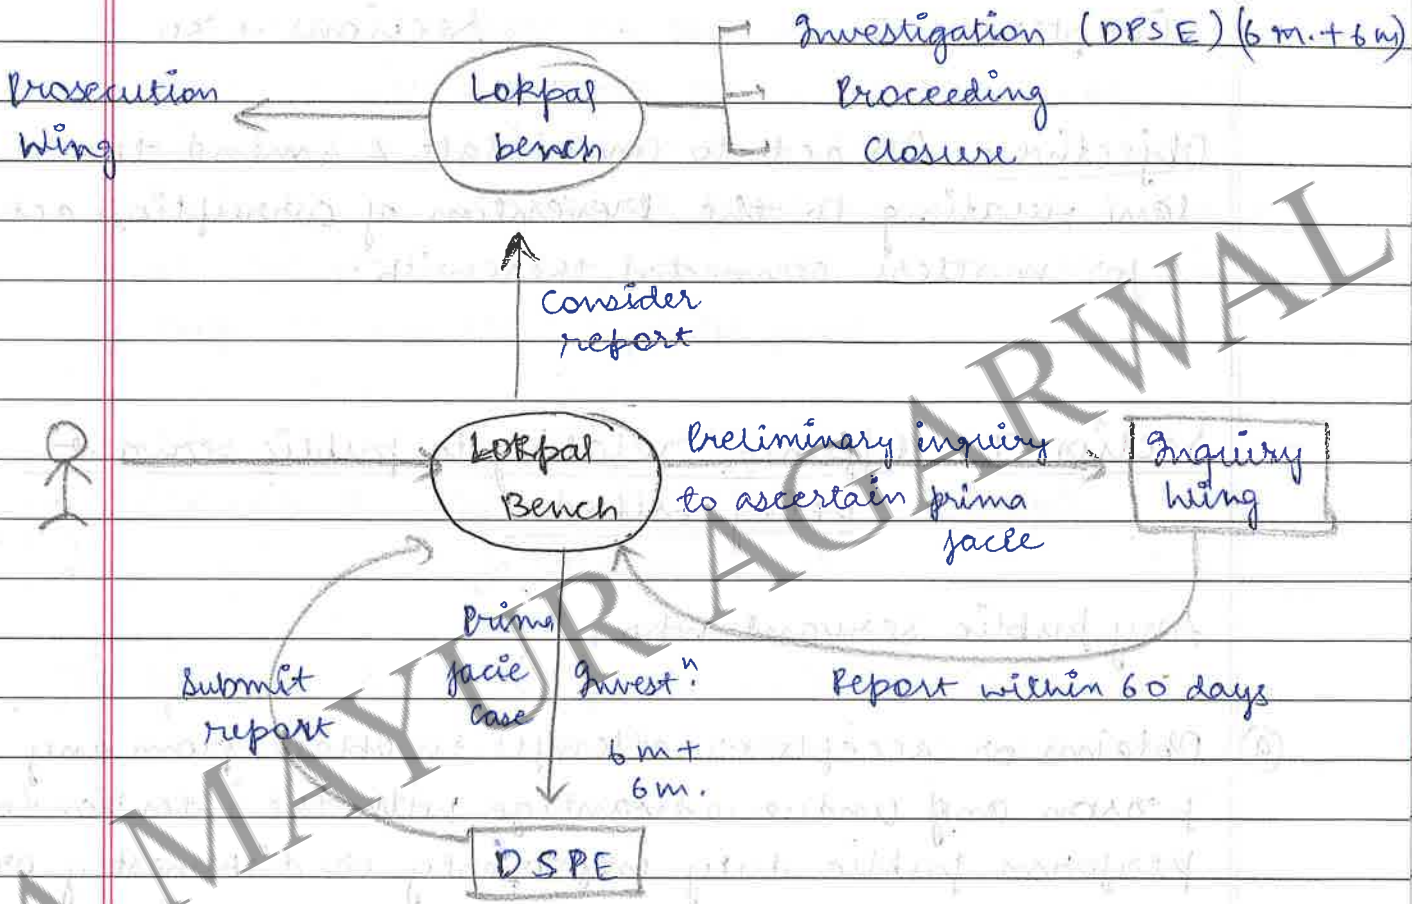 Investigation (DPSE) (6 m. + 6 m)
Prosecution
Wing
Lokpal
bench
Proceeding
Closure
Consider
report
Lokpal
Bench
Preliminary inquiry
to ascertain prima
facie
Inquiry
Wing
Prima
facie
Case
Investⁿ.
6 m +
6 m.
Submit
report
Report within 60 days
DSPE
MAYUR AGARWAL